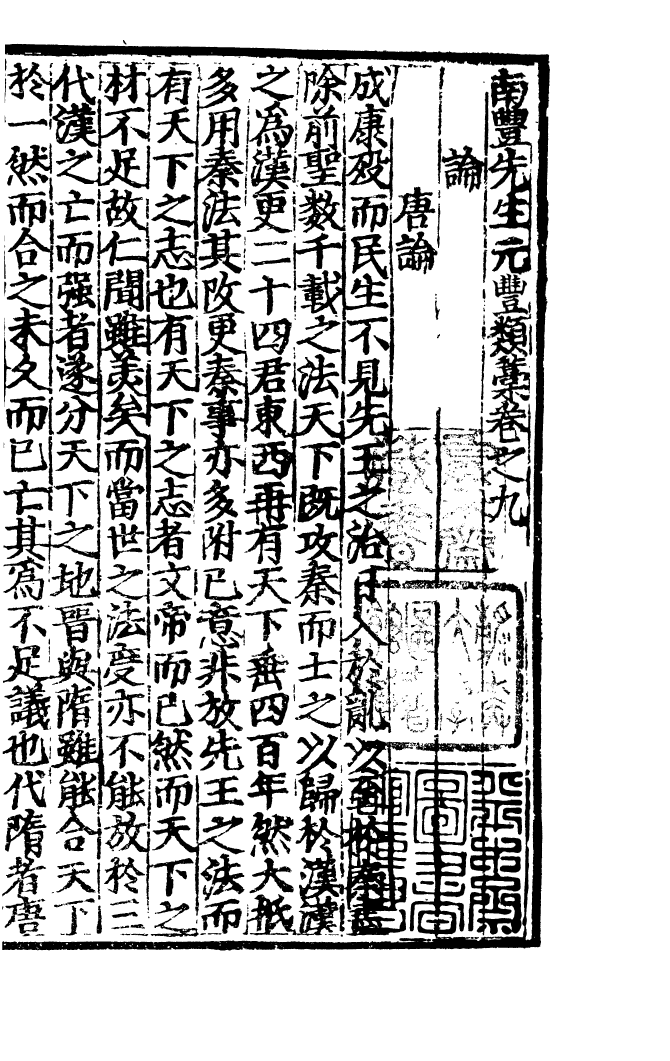 南豐先生元豐類藁卷之九
論
唐論
成康殁而民生不見先王之治日入於亂以至於秦盡
除前聖數千載之法天下既攻秦而士之以歸於漢漢
之爲漢更二十四君東西再有天下垂四百年然大抵
多用秦法其改更秦事亦多附已意非放先王之法而
有天下之志也有天下之志者文帝而已然而天下之
材不足故仁聞雖美矣而當世之法度亦不能放於三
代漢之亡而强者遂分天下之地晉與隋雖能合天下
於一然而合之未久而已亡其爲不足議也代隋者唐